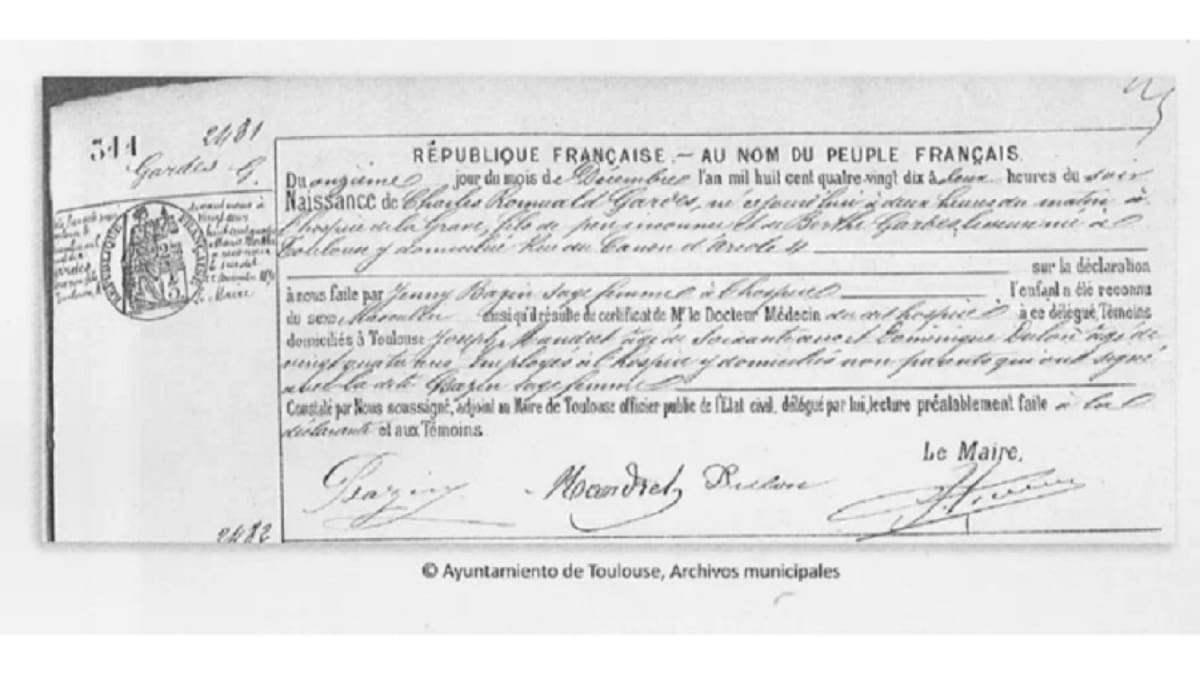 2481
344
Gardes G.
RÉPUBLIQUE FRANÇAISE. — AU NOM DU PEUPLE FRANÇAIS.
Du onzième jour du mois de Décembre l'an mil huit cent quatre-vingt dix à deux heures du soir
Naissance de Charles Romuald Gardes, né ce jourd'hui à deux heures du matin à
l'hospice de la Grave, fils de père inconnu et de Berthe Gardes, née à
Toulouse y domiciliée Rue du Canon d'Arcole 4
sur la déclaration
à nous faite par Jenny Bazin sage femme à l'hospice l'enfant a été reconnu
du sexe Masculin ainsi qu'il résulte de certificat de Mr le Docteur Médecin du dit hospice à ce délégué, Témoins
domiciliés à Toulouse Joseph Mandret âgé de soixante ans et Dominique Dulon âgé de
vingt quatre ans Employés à l'hospice y domiciliés non parents qui ont signé
avec la dite Bazin sage femme
Constaté par Nous soussigné, adjoint au Maire de Toulouse officier public de l'Etat civil, délégué par lui, lecture préalablement faite à la
déclarante et aux Témoins.
Le Maire,
Bazin Mandret Dulon
RÉPUBLIQUE FRANÇAISE
2482
© Ayuntamiento de Toulouse, Archivos municipales